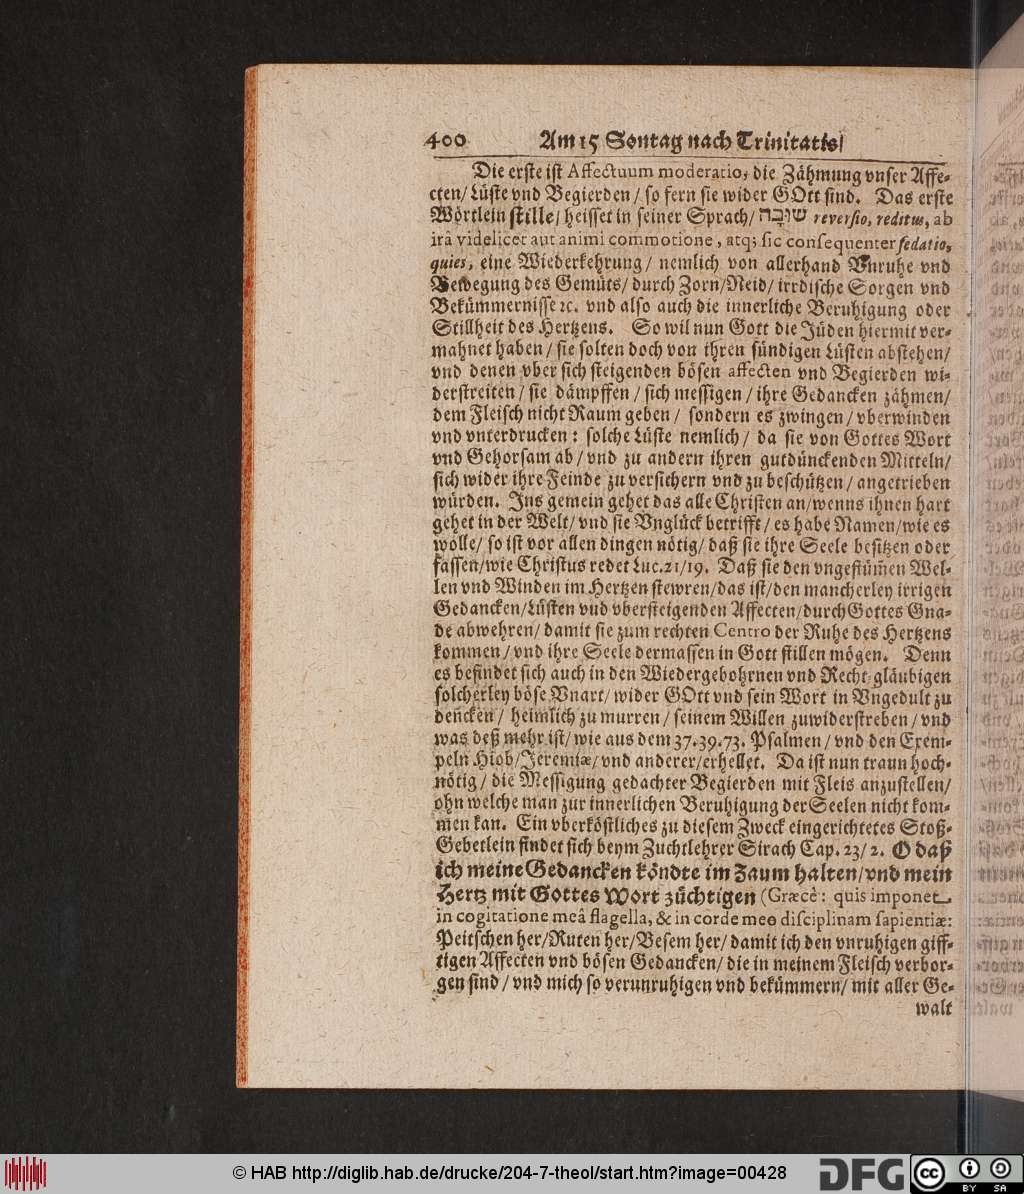 400 Am 15 Sontag nach Trinitatis/
Die erste ist Affectuum moderatio, die Zähmung vnser Affe-
cten/ Lüste vnd Begierden/ so fern sie wider GOtt sind. Das erste
Wörtlein stille/ heisset in seiner Sprach/ שׁוּבָה reversio, reditus, ab
irâ videlicet aut animi commotione, atq; sic consequenter sedatio,
quies, eine Wiederkehrung/ nemlich von allerhand Vnruhe vnd
Bewegung des Gemüts/ durch Zorn/Neid/ irrdische Sorgen vnd
Bekümmernisse ꝛc. vnd also auch die innerliche Beruhigung oder
Stillheit des Hertzens. So wil nun Gott die Jüden hiermit ver-
mahnet haben/ sie solten doch von ihren sündigen Lüsten abstehen/
vnd denen vber sich steigenden bösen affecten vnd Begierden wi-
derstreiten/ sie dämpffen/ sich messigen/ ihre Gedancken zähmen/
dem Fleisch nicht Raum geben/ sondern es zwingen/ vberwinden
vnd vnterdrucken: solche Lüste nemlich/ da sie von Gottes Wort
vnd Gehorsam ab/ vnd zu andern ihren gutdünckenden Mitteln/
sich wider ihre Feinde zu versichern vnd zu beschützen/ angetrieben
würden. Ins gemein gehet das alle Christen an/wenns ihnen hart
gehet in der Welt/ vnd sie Vnglück betrifft/ es habe Namen/wie es
wölle/ so ist vor allen dingen nötig/ daß sie ihre Seele besitzen oder
fassen/wie Christus redet Luc.21/19. Daß sie den vngestüm̃en Wel-
len vnd Winden im Hertzen stewren/das ist/den mancherley irrigen
Gedancken/Lüsten vnd vbersteigenden Affecten/durch Gottes Gna-
de abwehren/ damit sie zum rechten Centro der Ruhe des Hertzens
kommen/ vnd ihre Seele dermassen in Gott stillen mögen. Denn
es befindet sich auch in den Wiedergebohrnen vnd Recht gläubigen
solcherley böse Vnart/ wider GOtt vnd sein Wort in Vngedult zu
dencken/ heimlich zu murren/ seinem Willen zuwiderstreben/ vnd
was deß mehr ist/ wie aus dem 37.39.73. Psalmen/ vnd den Exem-
peln Hiob/Jeremiæ/ vnd anderer/erhellet. Da ist nun traun hoch-
nötig/ die Messigung gedachter Begierden mit Fleis anzustellen/
ohn welche man zur innerlichen Beruhigung der Seelen nicht kom-
men kan. Ein vberköstliches zu diesem Zweck eingerichtetes Stoß-
Gebetlein findet sich beym Zuchtlehrer Sirach Cap. 23/ 2. O daß
ich meine Gedancken köndte im Zaum halten/vnd mein
Hertz mit Gottes Wort züchtigen (Græcè: quis imponet
in cogitatione meâ flagella, & in corde meo disciplinam sapientiæ:
Peitschen her/Ruten her/Besem her/ damit ich den vnruhigen giff-
tigen Affecten vnd bösen Gedancken/ die in meinem Fleisch verbor-
gen sind/ vnd mich so verunruhigen vnd bekümmern/ mit aller Ge-
walt
© HAB http://diglib.hab.de/drucke/204-7-theol/start.htm?image=00428
DFG
cc
BY SA